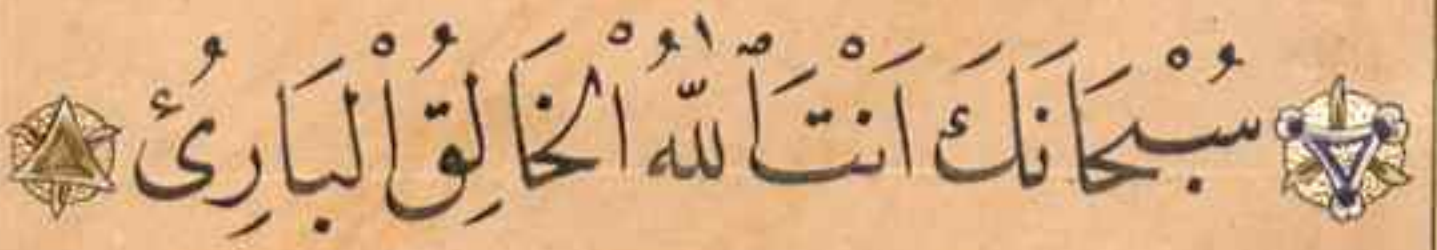 سُبْحَانَكَ اَنْتَ ٱللّٰهُ الْخَالِقُ الْبَارِئُ